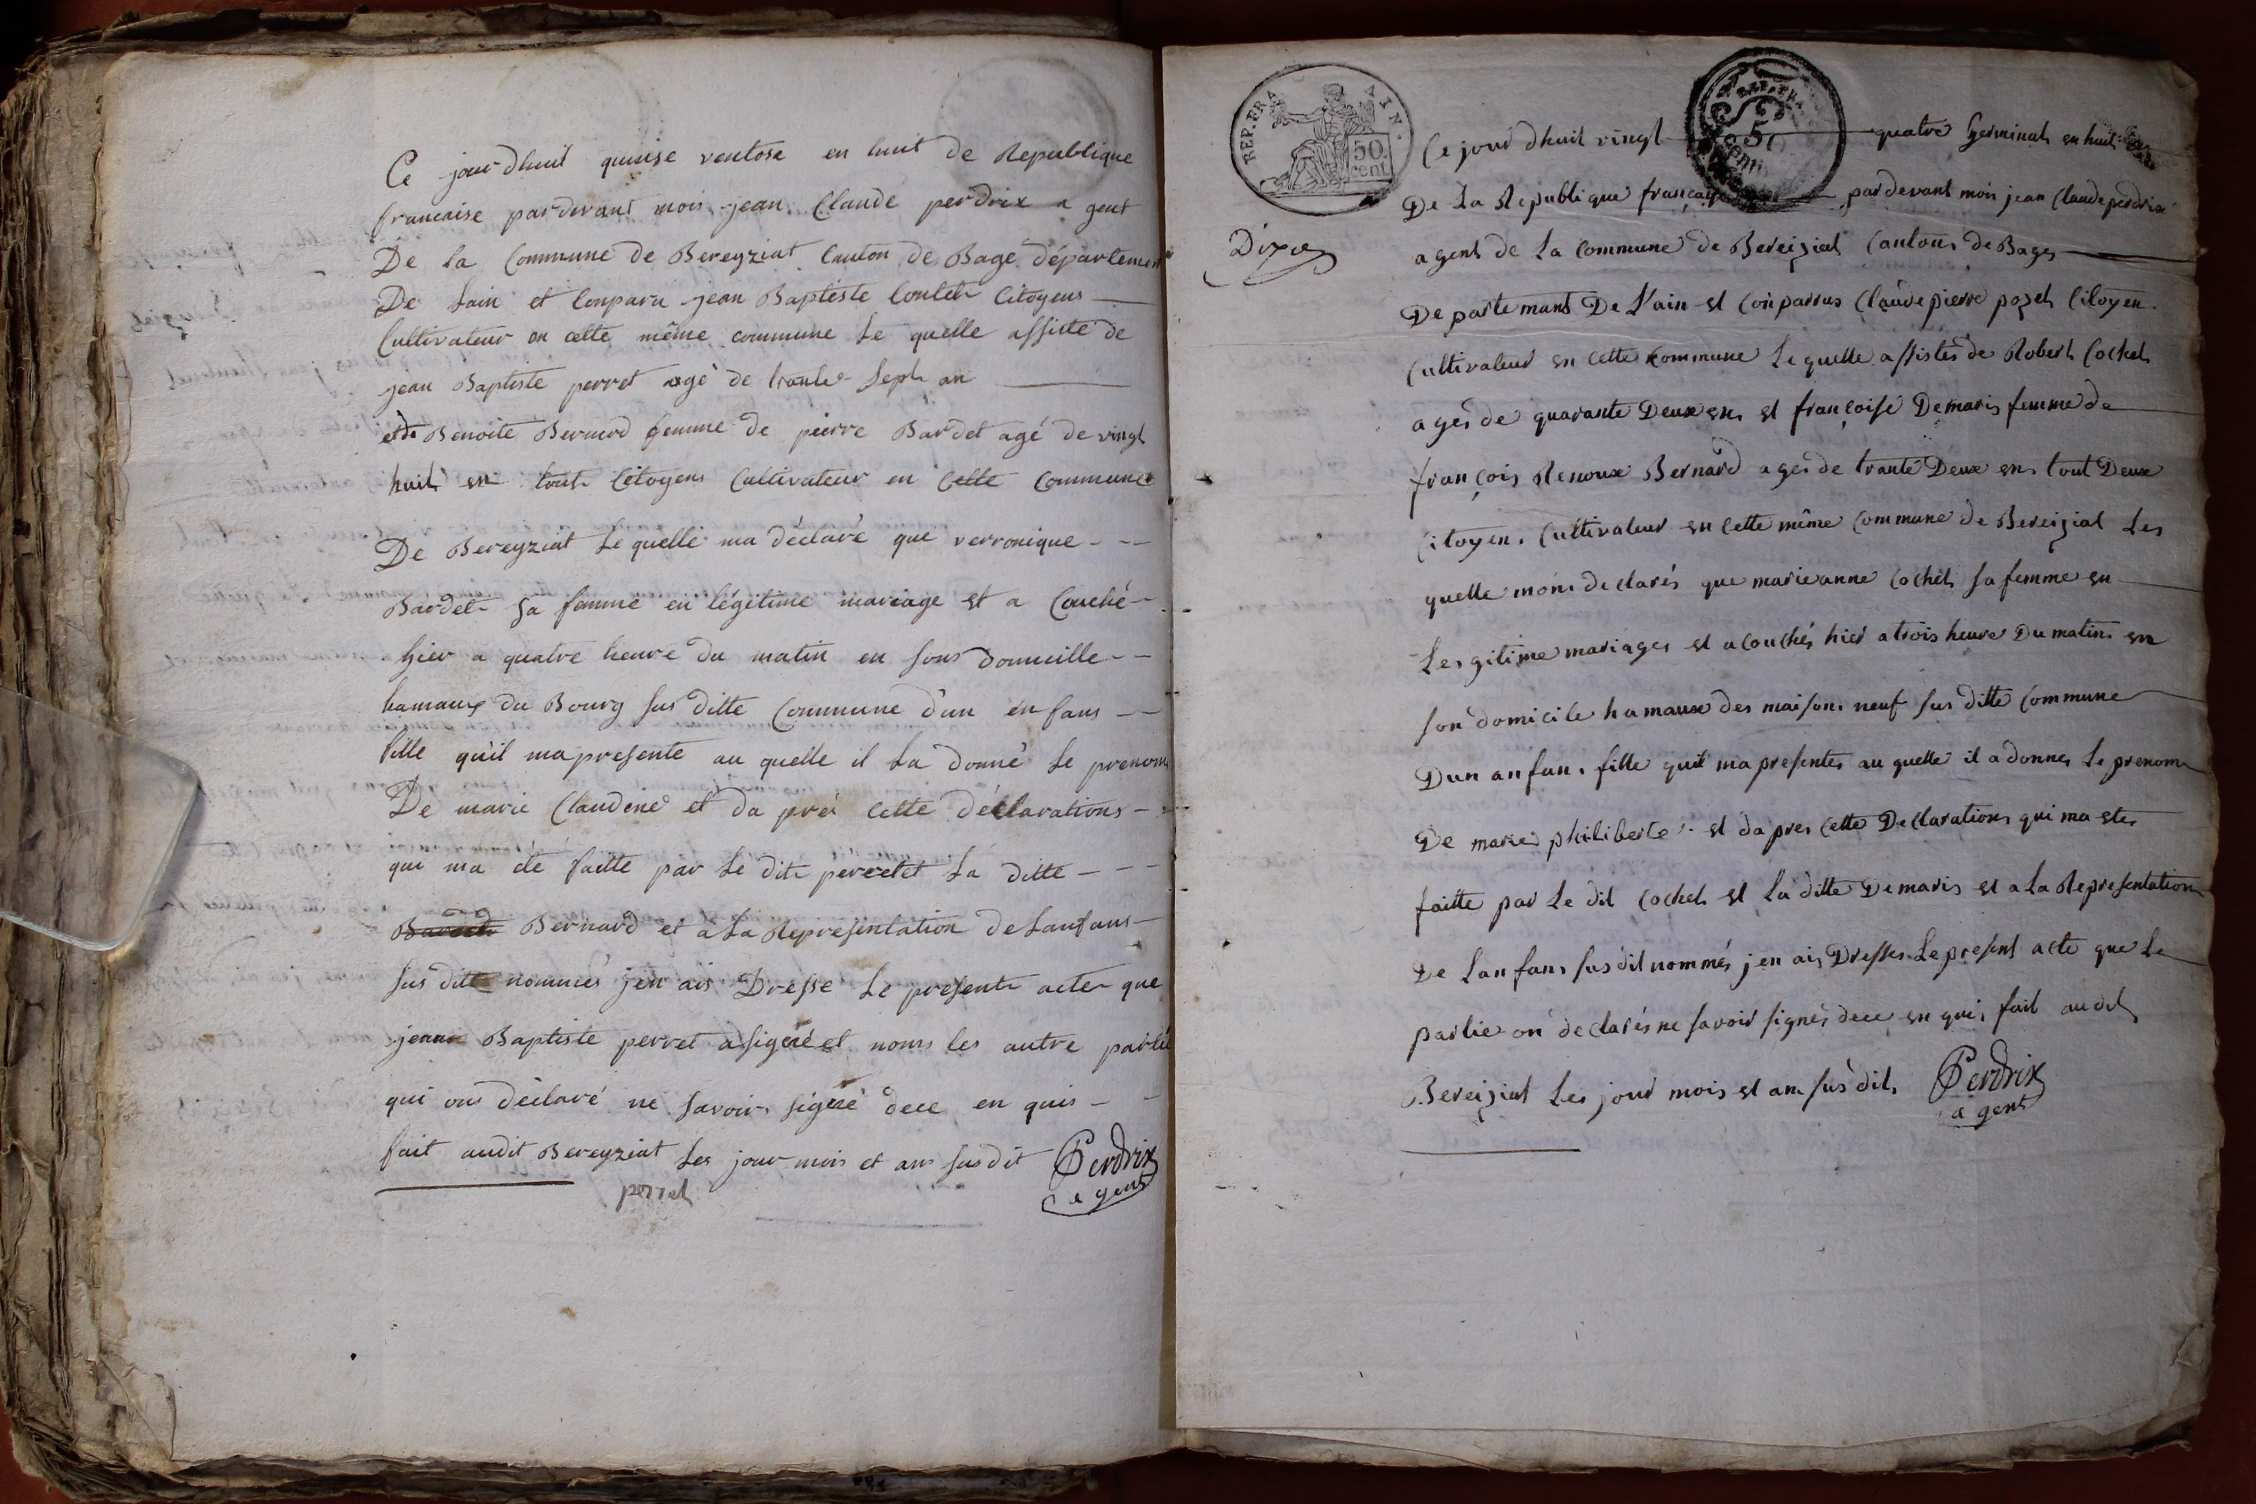 Ce jour dhuit quinse ventose en huit de Republique
francaise pardevant mois jean Claude perdrix a gent
De la Commune de Bereyziat Canton de Bage département
De Lain et Conparu jean Baptiste Contet Citoyens
Cultivateur en cette même commune Le quelle assisté de
jean Baptiste perret agé de trante Sept an
et de Benoite Bernard femme de pierre Bardet agé de vingt
huit en tout Citoyens Cultivateur en Cette Commune
De Bereyziat Le quelle ma déclaré que verronique
Bardet sa femme en légitime mariage et a Couché
hier a quatre heure du matin en sons domicille
hamaux du Bourg sus ditte Commune d'un énfans
fille qu'il ma presente au quelle il La donné Le prenom
De marie Claudine et da prés Cette déclarations
qui ma été faitte par Le dit perret et La ditte
Bernard et a La Representation de Lanfans
sus ditte nommés jen ais Dresse Le present acte que
jean Baptiste perret a signé et nons les autre partie
qui ons déclaré ne savoir signé dece en quis
fait audit Bereyziat Les jour mois et ans susdit Perdrix
perret a gent
REP. FRA AIN.
50 cent
REP. FRA
50
cent
Ce jour dhuit vingt quatre Germinal en huit
De La Republique française pardevant mois jean Claude perdrix
Dixe
agent de La Commune de Bereiziat Cantons de Bages
De partemant De L'ain et Conparrus Claude pierre pozet Citoyen
Cultivateur en Cette Commune Le quelle assistés de Robert Cochet
agés de quarante Deux ens et françoise Demaris femme de
françois Renoux Bernard ages de trante Deux ens tout Deux
Citoyens Cultivateur en Cette même Commune de Bereiziat Les
quelle mons declarés que marieanne Cochet sa femme en
Les gitime mariages et a couchés hier a trois heure Du matins en
son domicile hamaux des maisons neuf sus ditte Commune
Dun anfans fille quil ma presentes au quelle il a donnes Le prenom
De marie philiberte et da pres Cette Declarations qui ma etes
faitte par Le dit Cochet et La ditte Demaris et a La Representation
De Lanfans sus dit nommés jen ais Dresses Le present acte que Le
partie on declarés ne savoir signés dece en quis fait audit
Bereiziat Les jour mois et ans sus dit Perdrix
a gent